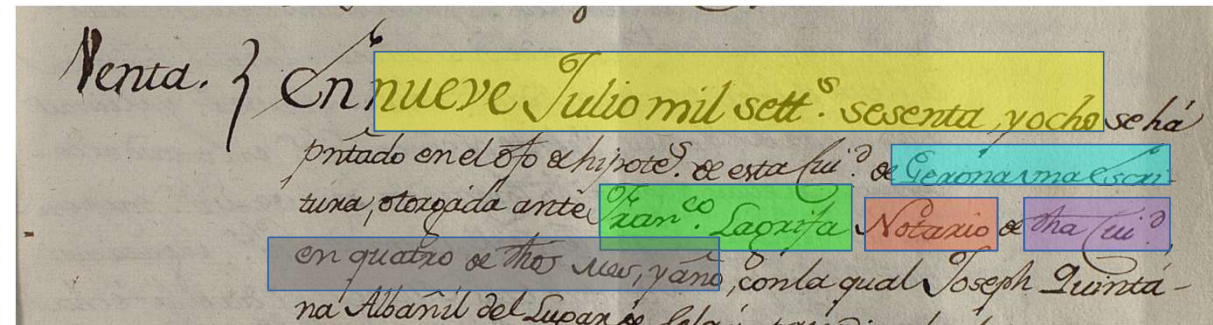 Venta. } En nueve Julio mil sett.s sesenta, y ocho se há
pntado en el ofo de hipote.s de esta Ciu.d de Gerona una escri-
tura, otorgada ante Fran.co Lagrifa Notario de dha Ciu.d,
en quatro de dhos mes, y año, con la qual Joseph Quintá-
na Albañil del Lugar de